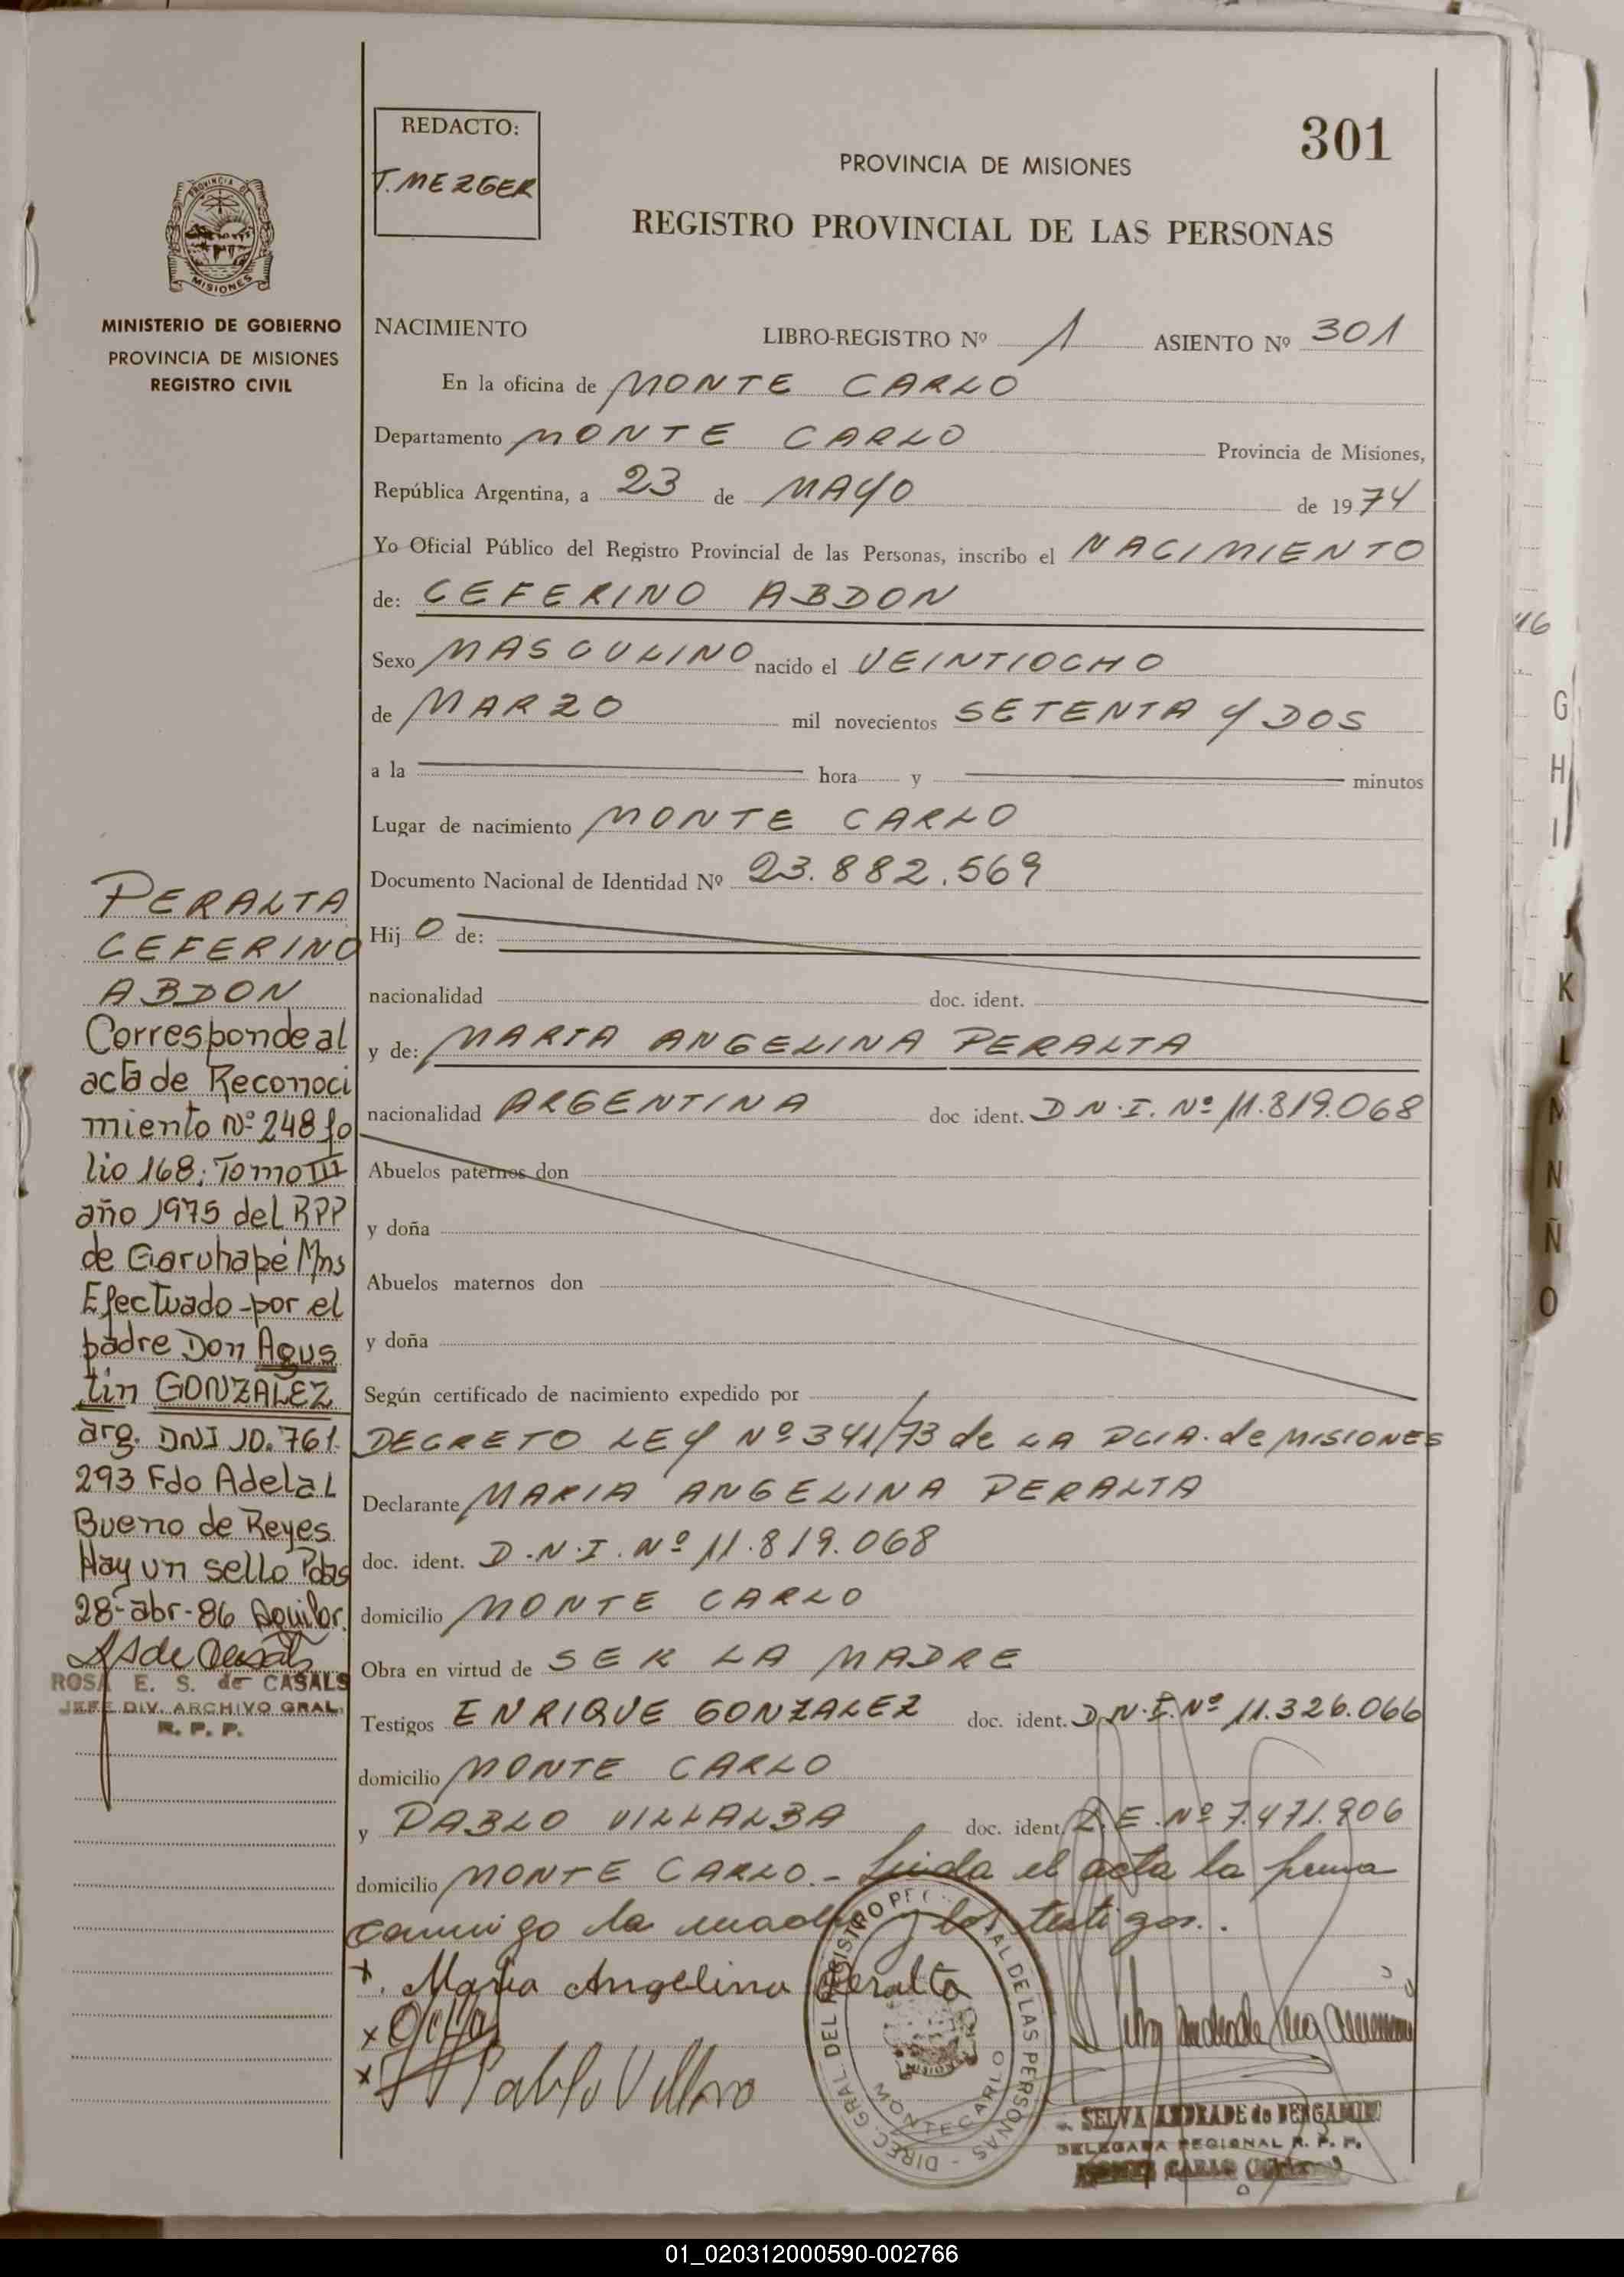 301
REDACTO:
T. MEZGER
PROVINCIA DE MISIONES
REGISTRO PROVINCIAL DE LAS PERSONAS
PROVINCIA DE
MISIONES
MINISTERIO DE GOBIERNO
PROVINCIA DE MISIONES
REGISTRO CIVIL
NACIMIENTO LIBRO-REGISTRO Nº 1 ASIENTO Nº 301
En la oficina de MONTE CARLO
Departamento MONTE CARLO Provincia de Misiones,
República Argentina, a 23 de MAYO de 1974
Yo Oficial Público del Registro Provincial de las Personas, inscribo el NACIMIENTO
de: CEFERINO ABDON
Sexo MASCULINO nacido el VEINTIOCHO
de MARZO mil novecientos SETENTA Y DOS
a la hora y minutos
Lugar de nacimiento MONTE CARLO
Documento Nacional de Identidad Nº 23.882.569
Hijo de:
nacionalidad doc. ident.
y de: MARIA ANGELINA PERALTA
nacionalidad ARGENTINA doc ident. D.N.I. Nº 11.819.068
Abuelos paternos don
y doña
Abuelos maternos don
y doña
Según certificado de nacimiento expedido por
DECRETO LEY Nº 341/73 de LA PCIA. de MISIONES
Declarante MARIA ANGELINA PERALTA
doc. ident. D.N.I. Nº 11.819.068
domicilio MONTE CARLO
Obra en virtud de SER LA MADRE
Testigos ENRIQUE GONZALEZ doc. ident. D.N.I. Nº 11.326.066
domicilio MONTE CARLO
y PABLO VILLALBA doc. ident. L.E. Nº 7.471.906
domicilio MONTE CARLO.- Leida el acta la firma
conmigo la madre y los testigos.
PERALTA
CEFERINO
ABDON
Corresponde al
acta de Reconoci
miento Nº 248 fo
lio 168; Tomo III
año 1975 del RPP
de Garuhapé Mns
Efectuado por el
padre Don Agus
tin GONZALEZ
arg. DNI 10.761.
293 Fdo Adela L
Bueno de Reyes
Hay un sello Pdas
28-abr-86 Aguilar.
ROSA E. S. de CASALS
JEFE DIV. ARCHIVO GRAL.
R. P. P.
x. Maria Angelina Peralta
x
x Pablo Villalva
DIREC. GRAL. DEL REGISTRO PROVINCIAL DE LAS PERSONAS
MONTECARLO
SELVA ANDRADE de BERGAMIN
DELEGADA REGIONAL R. P. P.
MONTE CARLO
16
G
H
I
J
K
L
M
N
Ñ
O
01_020312000590-002766